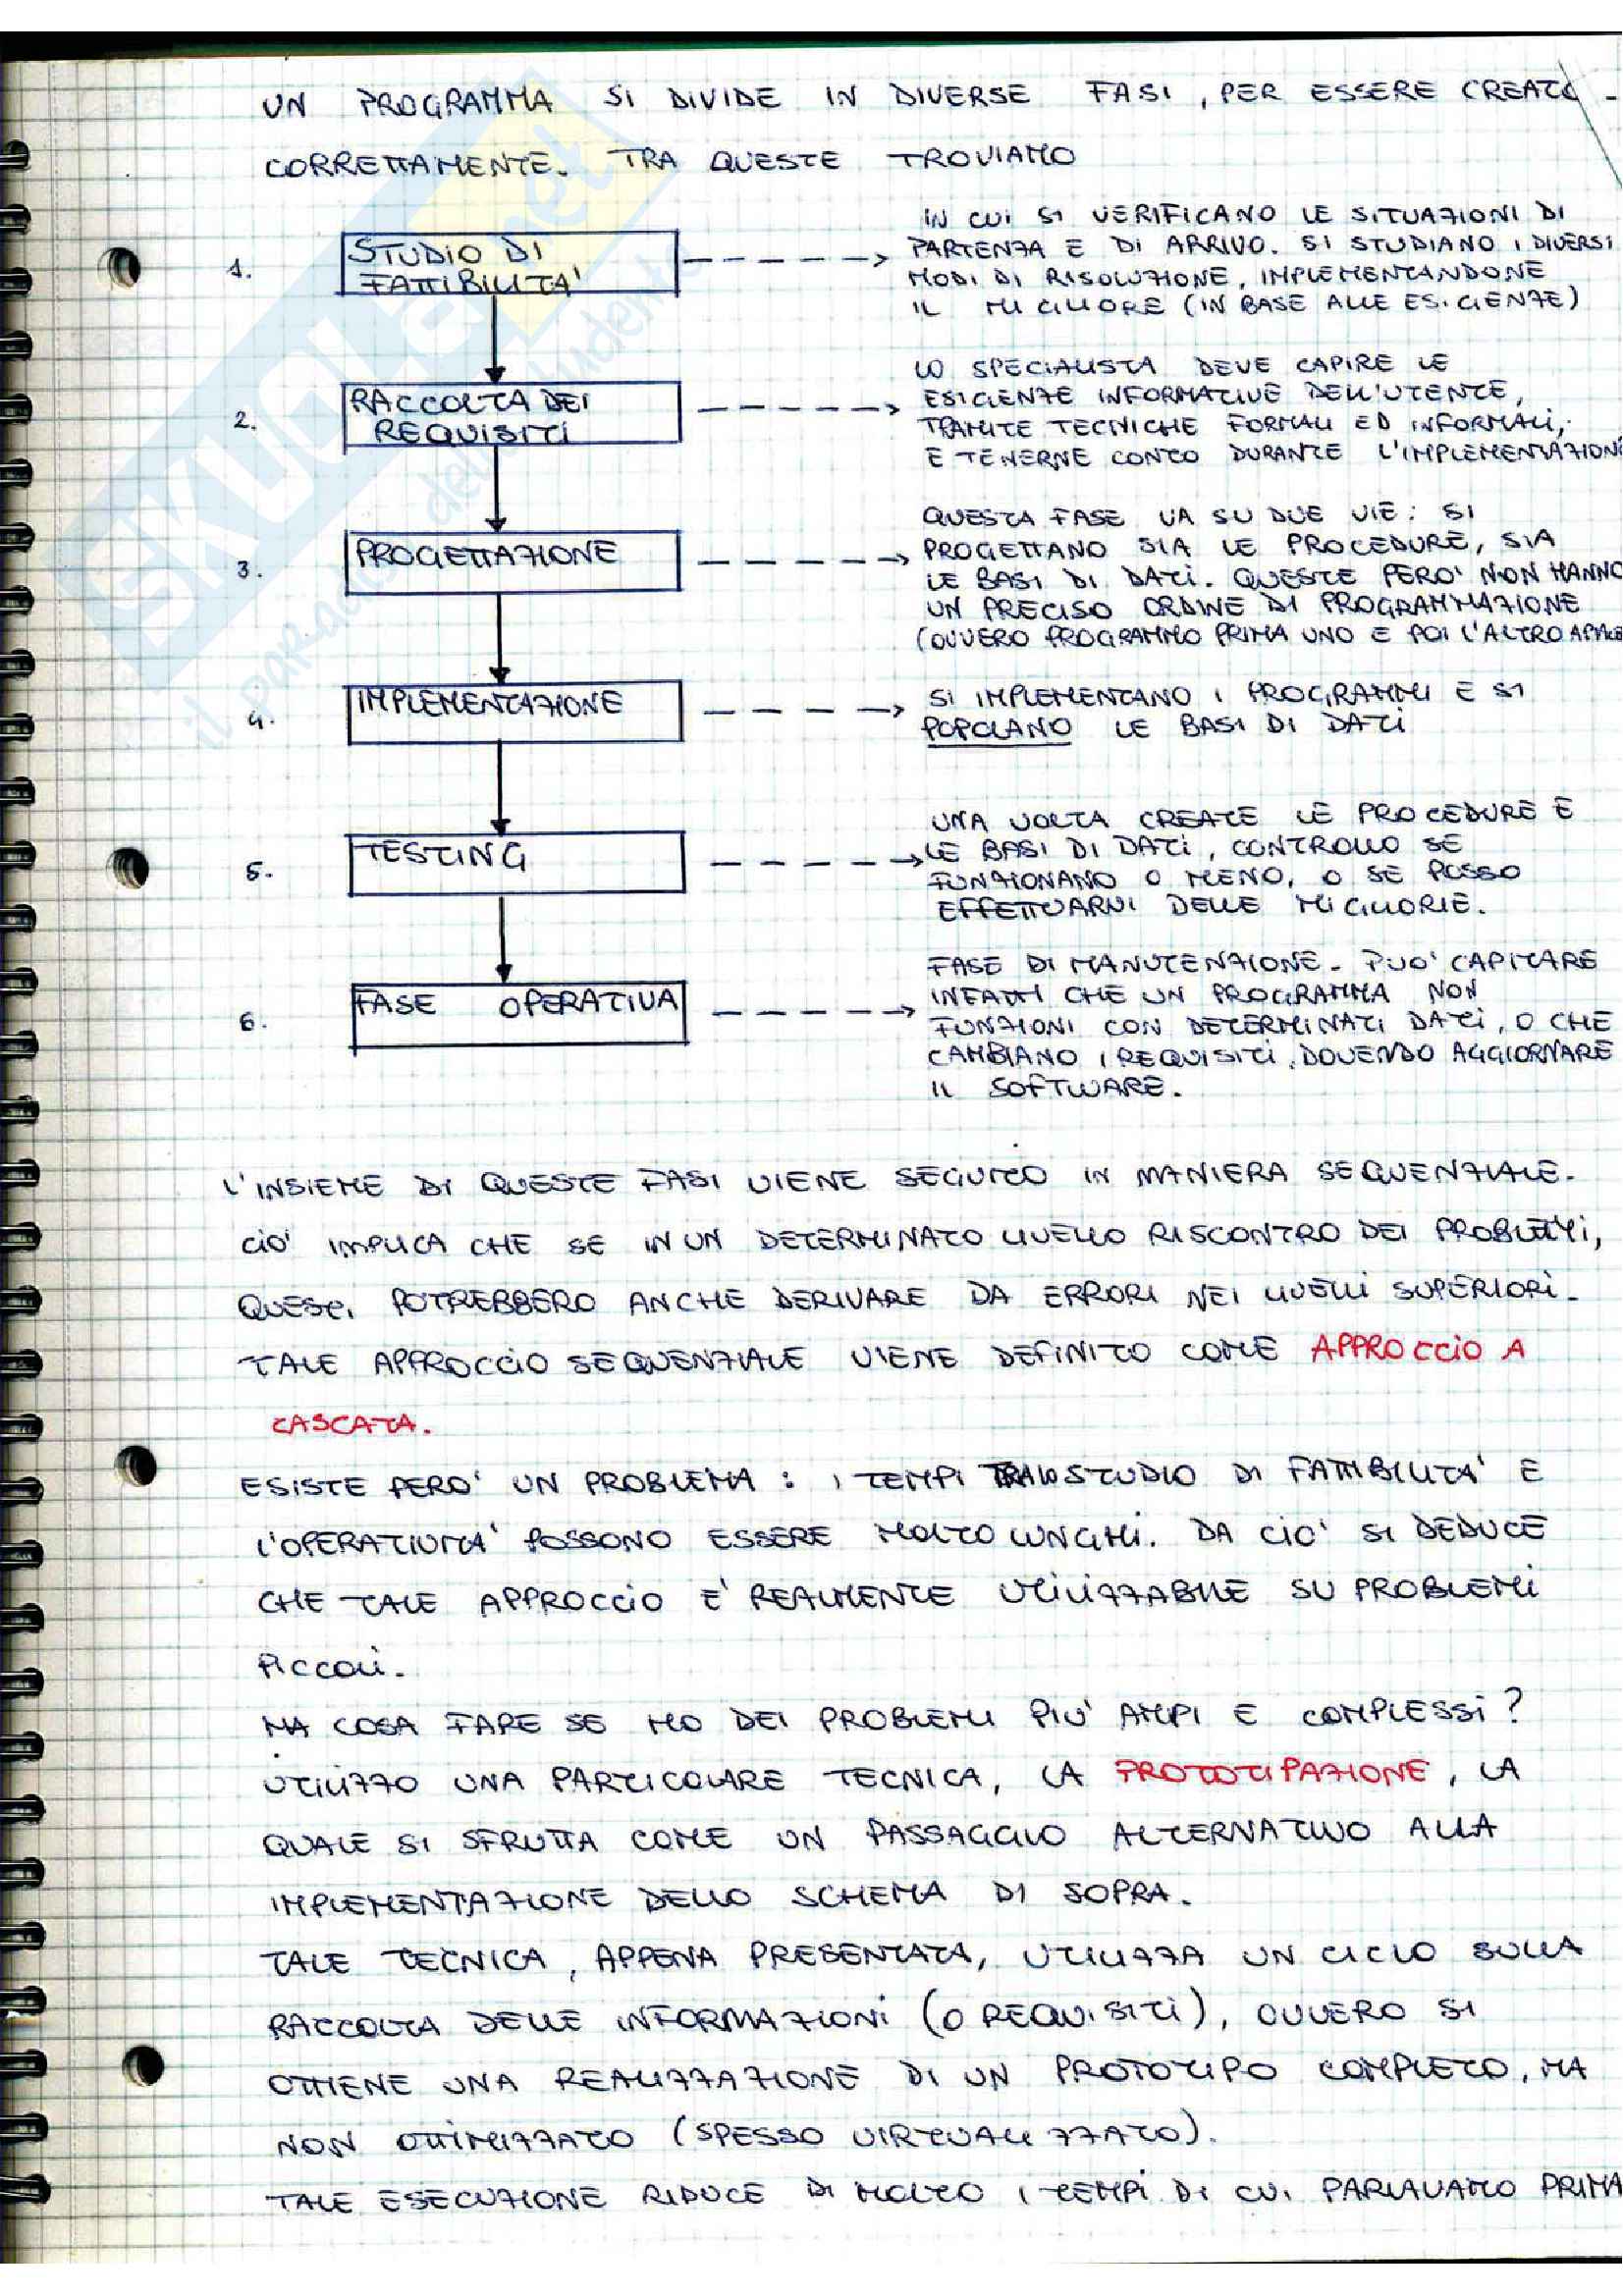 UN PROGRAMMA SI DIVIDE IN DIVERSE FASI, PER ESSERE CREATO
CORRETTAMENTE. TRA QUESTE TROVIAMO
1. STUDIO DI
FATTIBILITA'
IN CUI SI VERIFICANO LE SITUAZIONI DI
PARTENZA E DI ARRIVO. SI STUDIANO I DIVERSI
MODI DI RISOLUZIONE, IMPLEMENTANDONE
IL MIGLIORE (IN BASE ALLE ESIGENZE)
2. RACCOLTA DEI
REQUISITI
LO SPECIALISTA DEVE CAPIRE LE
ESIGENZE INFORMATIVE DELL'UTENTE,
TRAMITE TECNICHE FORMALI ED INFORMALI,
E TENERNE CONTO DURANTE L'IMPLEMENTAZIONE
3. PROGETTAZIONE
QUESTA FASE VA SU DUE VIE: SI
PROGETTANO SIA LE PROCEDURE, SIA
LE BASI DI DATI. QUESTE PERO' NON HANNO
UN PRECISO ORDINE DI PROGRAMMAZIONE
(OVVERO PROGRAMMO PRIMA UNO E POI L'ALTRO
4. IMPLEMENTAZIONE
SI IMPLEMENTANO I PROGRAMMI E SI
POPOLANO LE BASI DI DATI
5. TESTING
UNA VOLTA CREATE LE PROCEDURE E
LE BASI DI DATI, CONTROLLO SE
FUNZIONANO O MENO, O SE POSSO
EFFETTUARVI DELLE MIGLIORIE.
6. FASE OPERATIVA
FASE DI MANUTENZIONE. PUO' CAPITARE
INFATTI CHE UN PROGRAMMA NON
FUNZIONI CON DETERMINATI DATI, O CHE
CAMBIANO I REQUISITI, DOVENDO AGGIORNARE
IL SOFTWARE.
L'INSIEME DI QUESTE FASI VIENE SEGUITO IN MANIERA SEQUENZIALE.
CIO' IMPLICA CHE SE IN UN DETERMINATO LIVELLO RISCONTRO DEI PROBLEMI,
QUESTI POTREBBERO ANCHE DERIVARE DA ERRORI NEI LIVELLI SUPERIORI.
TALE APPROCCIO SEQUENZIALE VIENE DEFINITO COME APPROCCIO A
CASCATA.
ESISTE PERO' UN PROBLEMA: I TEMPI TRA LO STUDIO DI FATTIBILITA' E
L'OPERATIVITA' POSSONO ESSERE MOLTO LUNGHI. DA CIO' SI DEDUCE
CHE TALE APPROCCIO E' REALMENTE UTILIZZABILE SU PROBLEMI
PICCOLI.
MA COSA FARE SE HO DEI PROBLEMI PIU' AMPI E COMPLESSI?
UTILIZZO UNA PARTICOLARE TECNICA, LA PROTOTIPAZIONE, LA
QUALE SI SFRUTTA COME UN PASSAGGIO ALTERNATIVO ALLA
IMPLEMENTAZIONE DELLO SCHEMA DI SOPRA.
TALE TECNICA, APPENA PRESENTATA, UTILIZZA UN CICLO SULLA
RACCOLTA DELLE INFORMAZIONI (O REQUISITI), OVVERO SI
OTTIENE UNA REALIZZAZIONE DI UN PROTOTIPO COMPLETO, MA
NON OTTIMIZZATO (SPESSO VIRTUALIZZATO).
TALE ESECUZIONE RIDUCE DI MOLTO I TEMPI DI CUI PARLAVAMO PRIMA
SKUOLA.net
il paradiso dello studente